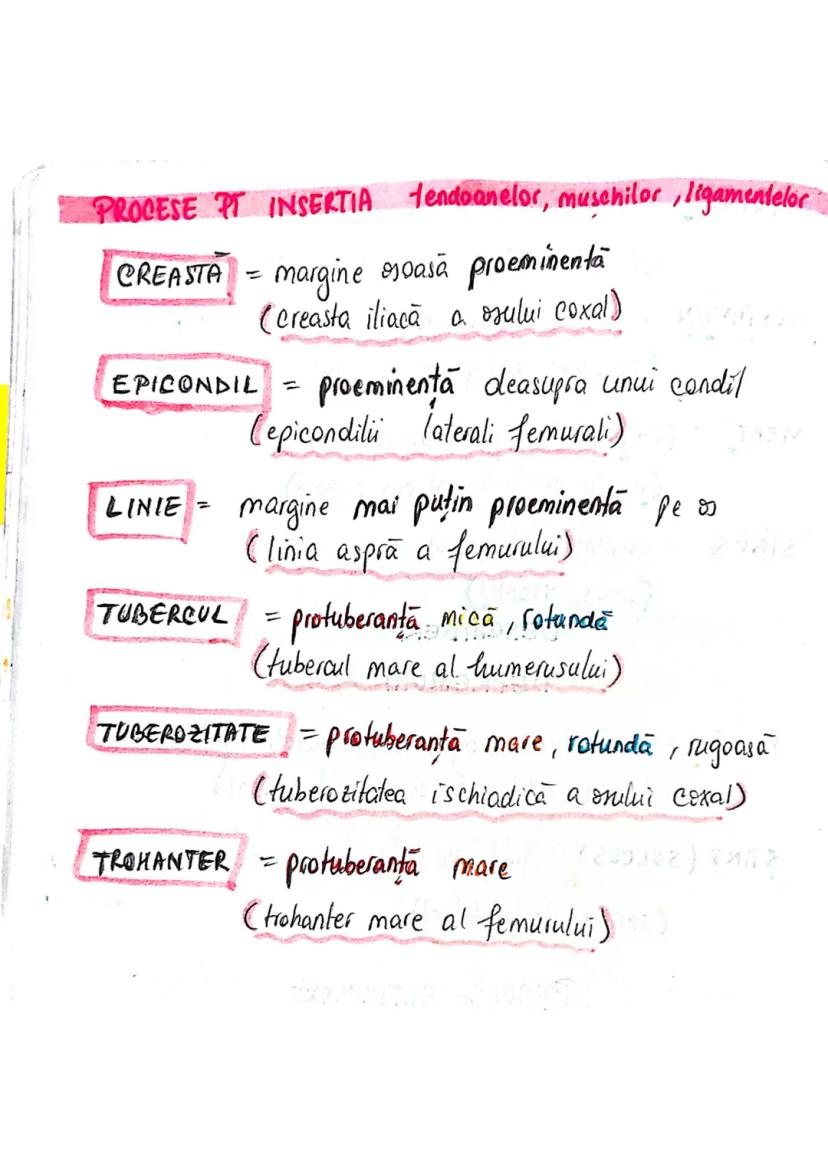 PROCESE PT INSERTIA tendoanelor, mușchilor, ligamentelor
CREASTĂ = margine osoasă proeminentă
(creasta iliacă a osului coxal)
EPICONDIL = proeminență deasupra unui condil
(epicondilii laterali femurali)
LINIE = margine mai puțin proeminentă pe os
(linia aspră a femurului)
TUBERCUL = protuberanță mică, rotundă
(tubercul mare al humerusului)
TUBEROZITATE = protuberanță mare, rotundă, rugoasă
(tuberozitatea ischiadică a osului coxal)
TROHANTER = protuberanță mare
(trohanter mare al femurului)